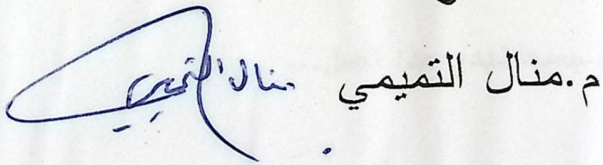 م.منال التميمي منال التميمي